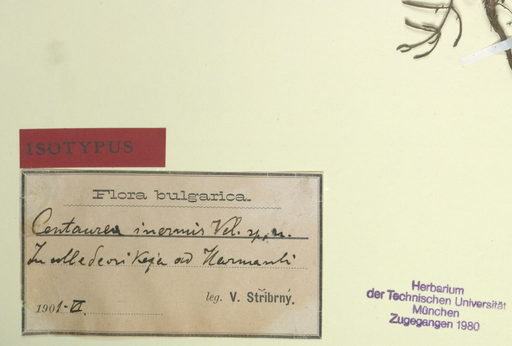 ISOTYPUS
Flora bulgarica.
Centaurea inermis Vel. sp. n.
In colle Deorikeja ad Harmanli
leg. V. Stříbrný.
1901-VI.
Herbarium
der Technischen Universität
München
Zugegangen 1980